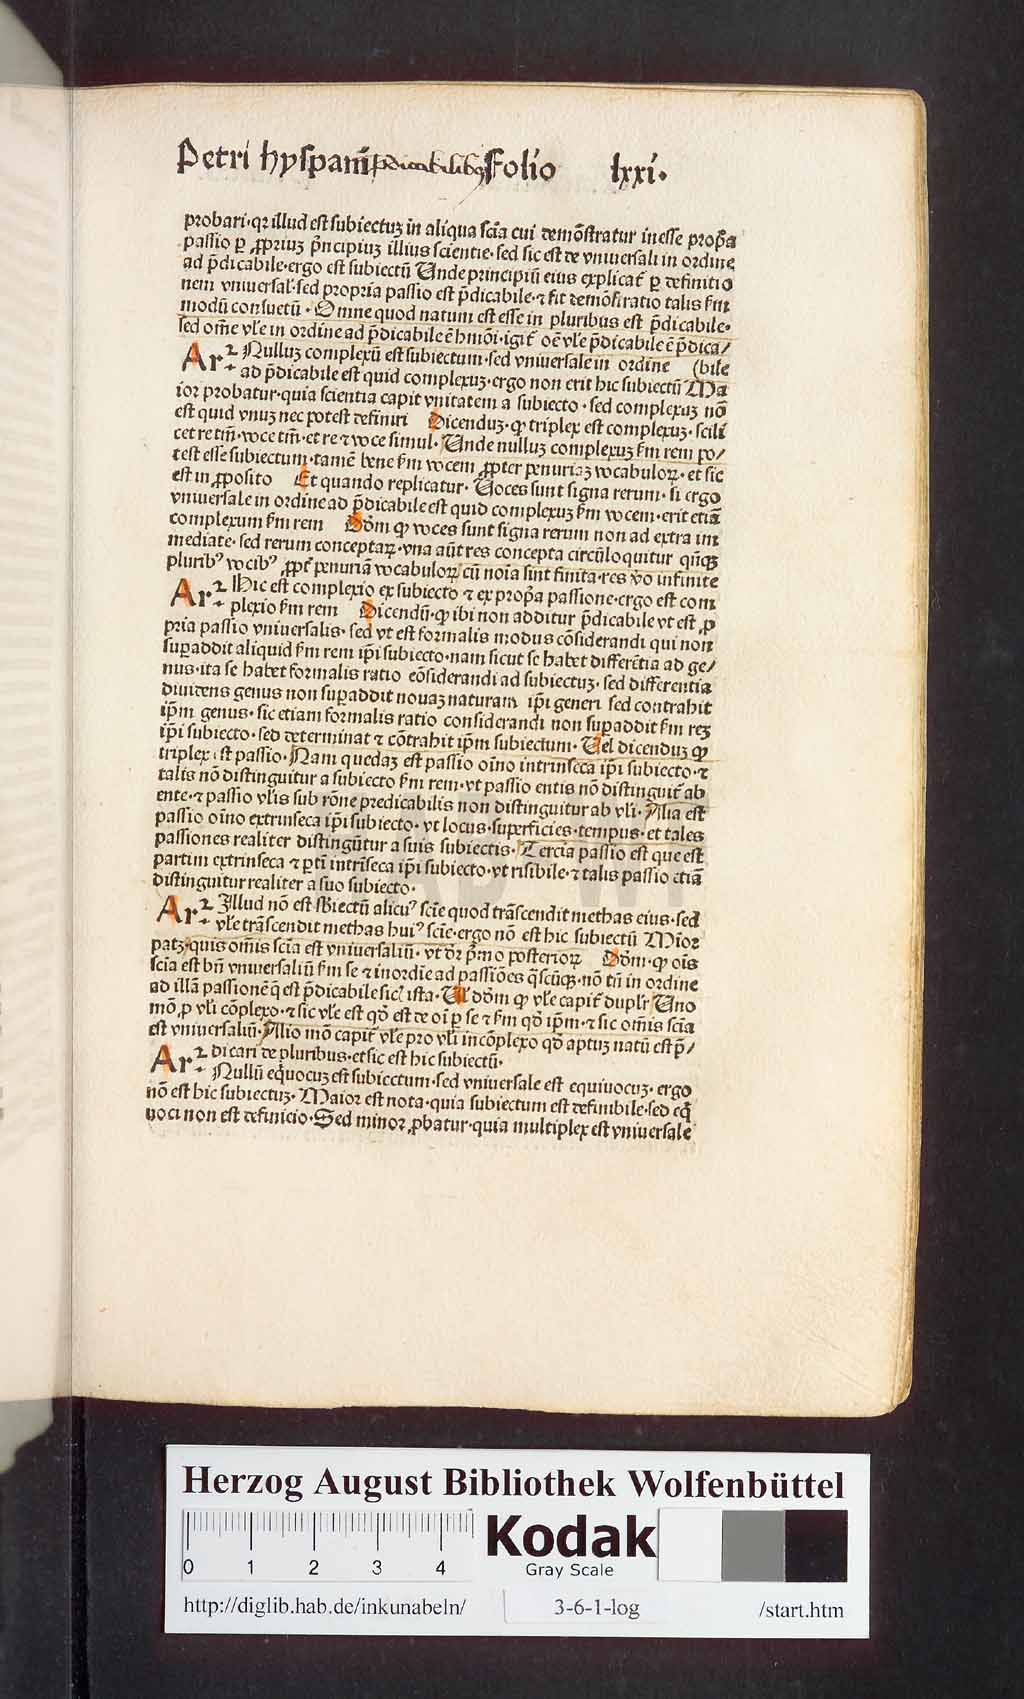 Petri hyspani p̄dicabilibꝫ Folio lxxi.
probari·qꝛ illud est subiectuꝫ in aliqua sciā cui demōstratur inesse prop̄a
passio ꝑ ꝓpriuꝫ p̄ncipiuꝫ illius scientie·sed sic est de vniuersali in ordine
ad p̄dicabile·ergo est subiectū Unde principiū eius explicat̄ ꝑ definitio
nem vniuersal·sed propria passio est p̄dicabile·⁊ fit demōstratio talis ẜm
modū consuetū·Omne quod natum est esse in pluribus est p̄dicabile·
sed om̄e vl̄e in ordine ad p̄dicabile ē hmōi·igit̄ oē vl̄e p̄dicabile ē p̄dica/
Ar·2· Nulluꝫ complexū est subiectum·sed vniuersale in ordine (bile
ad p̄dicabile est quid complexuꝫ·ergo non erit hic subiectū Ma
ior probatur·quia scientia capit vnitatem a subiecto·sed complexuꝫ nō
est quid vnuꝫ nec potest definiri Dicenduꝫ·ꝙ triplex est complexuꝫ·scili
cet re tm̄·voce tm̄·et re ⁊ voce simul·Unde nulluꝫ complexuꝫ ẜm rem po/
test esse subiectum·tamē bene ẜm vocem ꝓpter penuriaꝫ vocabuloꝝ·et sic
est in ꝓposito Et quando replicatur·Uoces sunt signa rerum·si ergo
vniuersale in ordine ad p̄dicabile est quid complexuꝫ ẜm vocem·erit etiā
complexum ẜm rem Dōm ꝙ voces sunt signa rerum non ad extra im
mediate·sed rerum conceptaꝝ·vna aūt res concepta circūloquitur qn̄qꝫ
pluribꝰ vocibꝰ ꝓpt̄ penuriā vocabuloꝝ cū noīa sint finita·res vō infinite
Ar·2· Hic est complexio ex subiecto ⁊ ex prop̄a passione·ergo est com
plexio ẜm rem Dicendū·ꝙ ibi non additur p̄dicabile vt est ꝓ
pria passio vniuersalis·sed vt est formalis modus cōsiderandi qui non
suꝑaddit aliquid ẜm rem ip̄i subiecto·nam sicut se habet differētia ad ge/
nus·ita se habet formalis ratio cōsiderandi ad subiectuꝫ·sed differentia
diuidens genus non suꝑaddit nouaꝫ naturam ip̄i generi sed contrahit
ip̄m genus·sic etiam formalis ratio considerandi non suꝑaddit ẜm reꝫ
ip̄i subiecto·sed determinat ⁊ cōtrahit ip̄m subiectum·Uel dicenduꝫ ꝙ
triplex est passio·Nam quedaꝫ est passio oīno intrinseca ip̄i subiecto·⁊
talis nō distinguitur a subiecto ẜm rem·vt passio entis nō distinguit̄ ab
ente·⁊ passio vl̄is sub rōne predicabilis non distinguitur ab vl̄i·Alia est
passio oīno extrinseca ip̄i subiecto·vt locus·superficies·tempus·et tales
passiones realiter distingūtur a suis subiectis·Tercia passio est que est
partim extrinseca ⁊ ꝑtī intrīseca ip̄i subiecto·vt risibile·⁊ talis passio etiā
distinguitur realiter a suo subiecto·
Ar·2· Illud nō est sbiectū alicuꝰ scīe quod trāscendit methas eius·sed
vl̄e trāscendit methas huiꝰ scīe·ergo nō est hic subiectū Mīor
patꝫ·quis om̄is scīa est vniuersaliū·vt dr̄ p̄mo posterioꝝ Dōm·ꝙ oīs
scīa est bn̄ vniuersaliū ẜm se ⁊ inordīe ad passiōes q̄scūqꝫ·nō tn̄ in ordine
ad illā passionē q̄ est p̄dicabile sic ista·Ul̄ dōm ꝙ vl̄e capit̄ duplr̄ Uno
mō ꝓ vl̄i cōplexo·⁊ sic vl̄e est qd̄ est de oī ꝑ se ⁊ ẜm qd̄ ip̄m·⁊ sic om̄is scīa
est vniuersaliū·Alio mō capit̄ vl̄e pro vl̄i incōplexo qd̄ aptuꝫ natū est p̄/
Ar·2· dicari de pluribus·et sic est hic subiectū·
Nullū eq̄uocuꝫ est subiectum·sed vniuersale est equiuocuꝫ·ergo
nō est hic subiectuꝫ·Maior est nota·quia subiectum est definibile·sed eq̄
uoci non est definicio·Sed minor ꝓbatur·quia multiplex est vniuersale
HAB WF
Herzog August Bibliothek Wolfenbüttel
0 1 2 3 4
Kodak
Gray Scale
http://diglib.hab.de/inkunabeln/ 3-6-1-log /start.htm